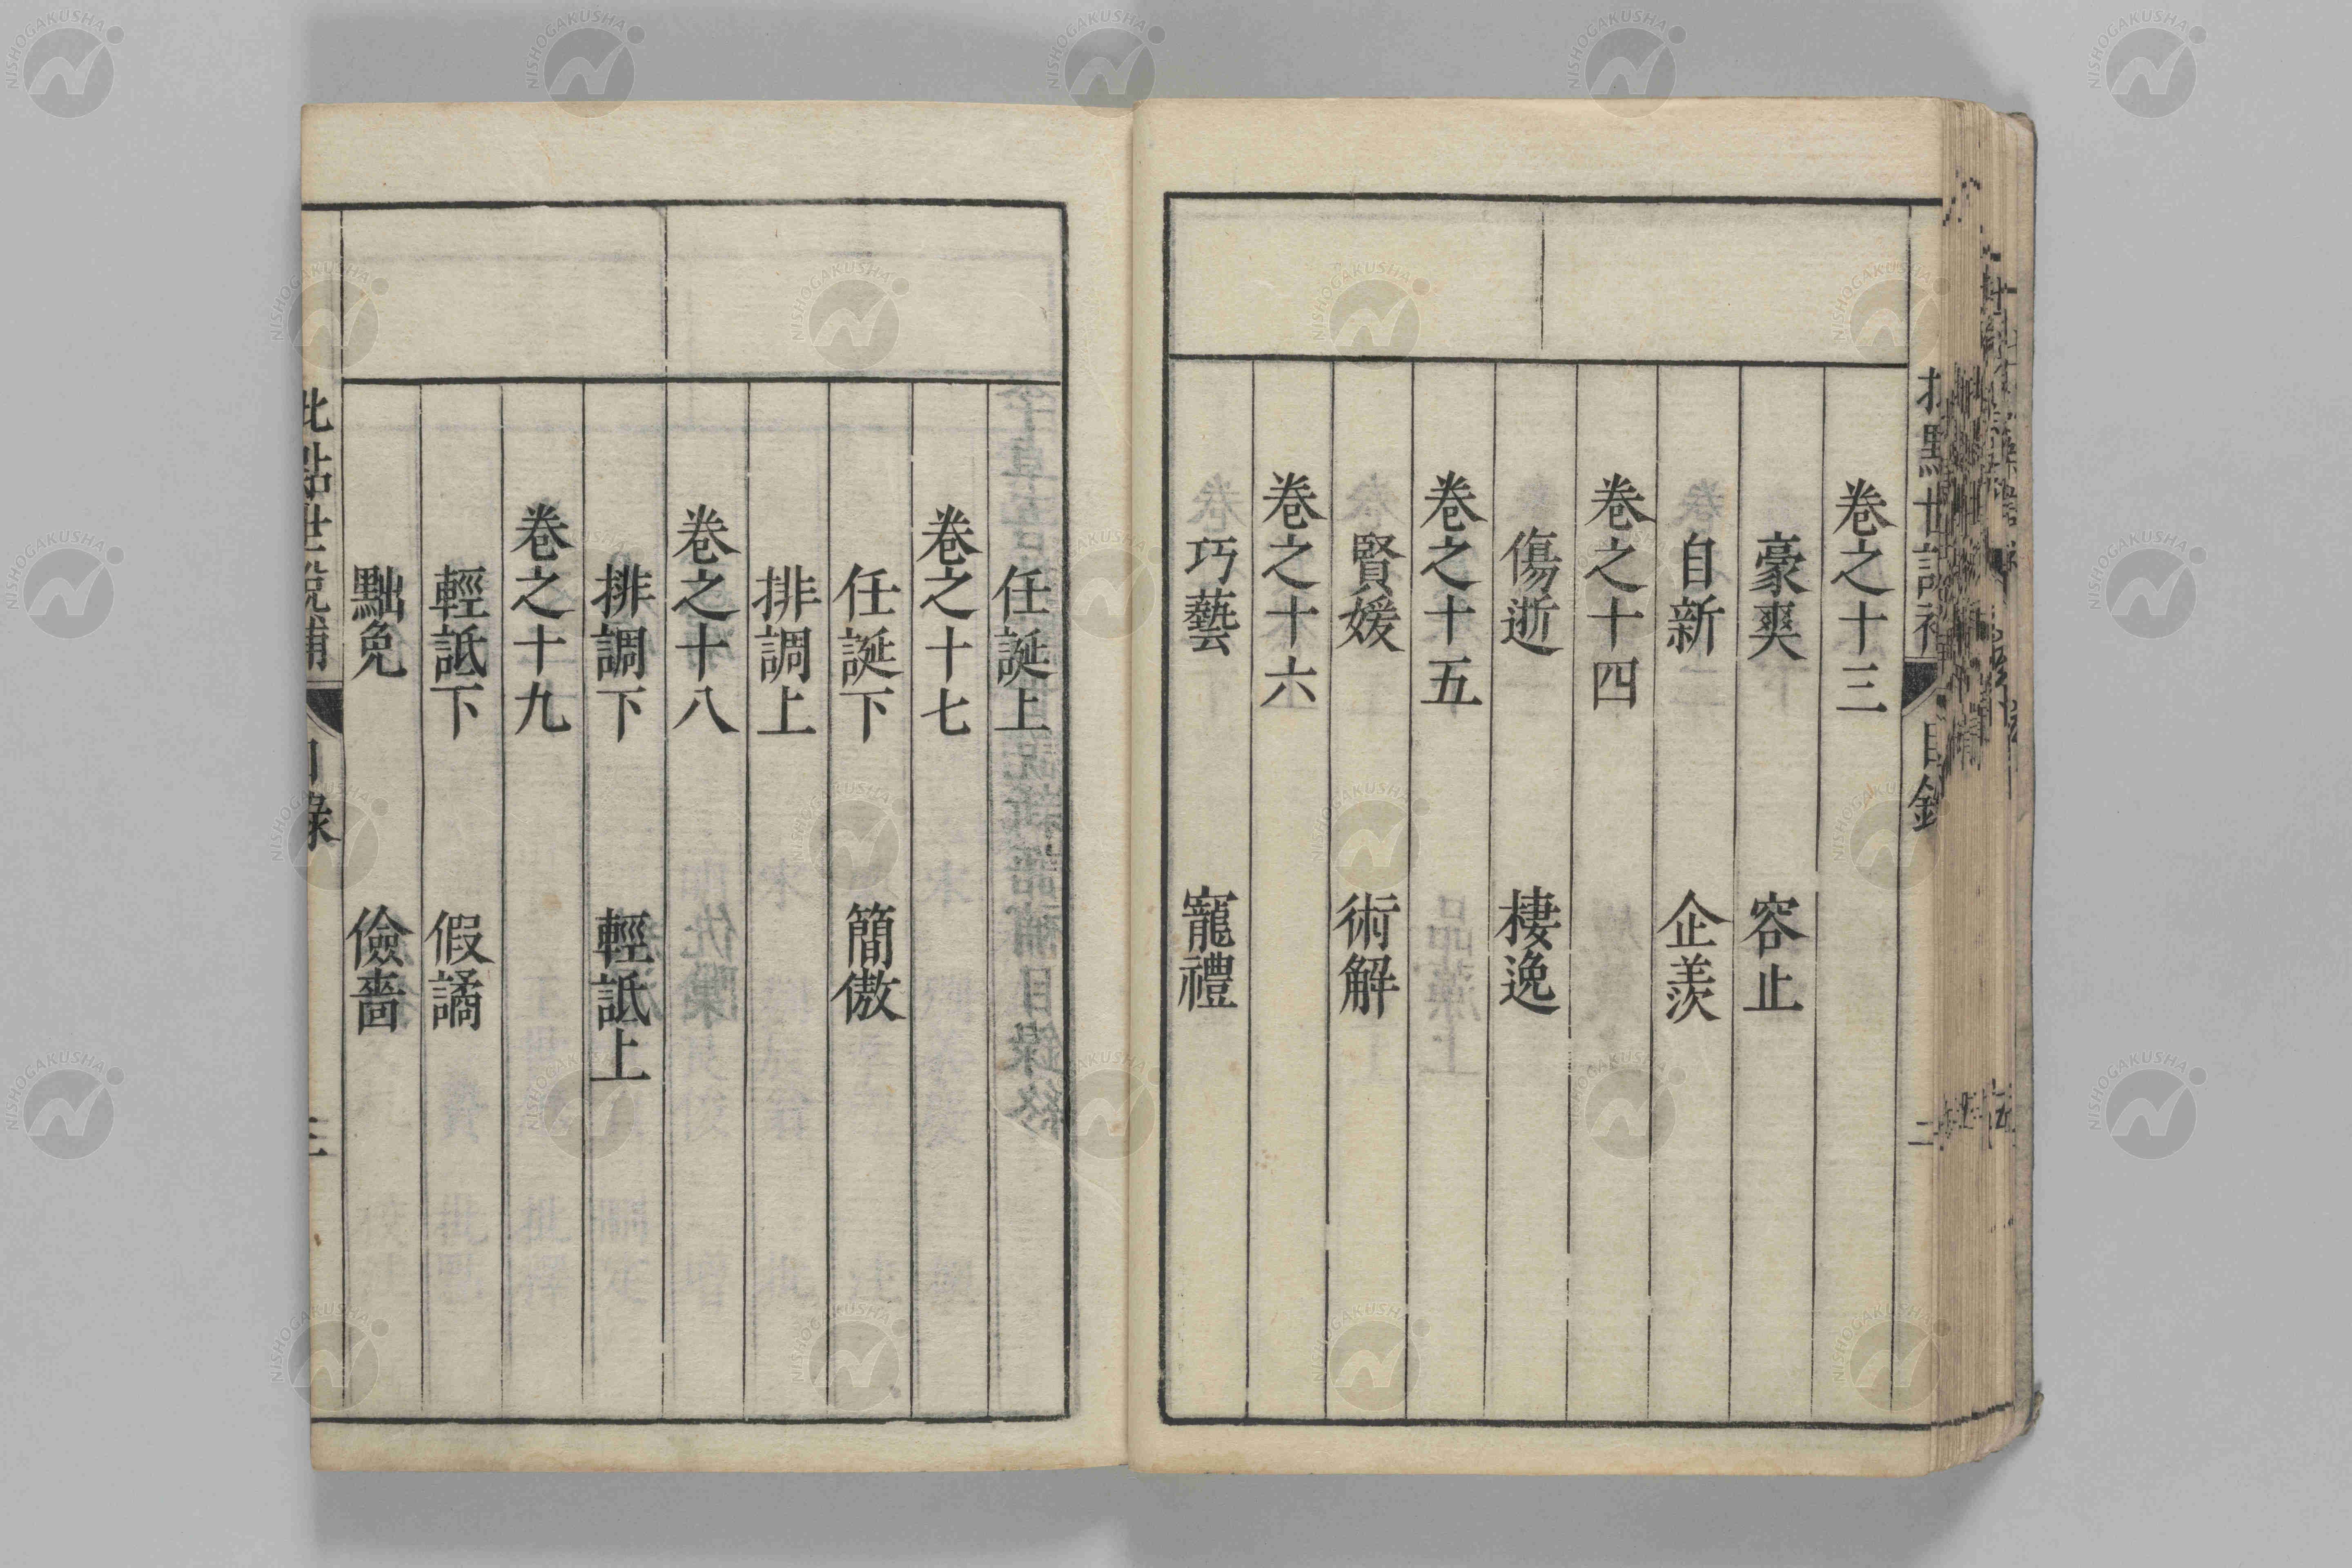 卷之十三
豪爽　容止
自新　企羡
卷之十四
傷逝　棲逸
卷之十五
賢媛　術解
卷之十六
巧藝　寵禮
任誕上
卷之十七
任誕下　簡傲
排調上
卷之十八
排調下　輕詆上
卷之十九
輕詆下　假譎
黜免　儉嗇
批點世說補　目錄　三
NISHOGAKUSHA